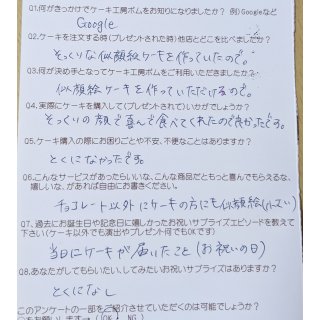 Q1.何がきっかけでケーキ工房ボムをお知りになりましたか？ 例)Googleなど
Google
Q2.ケーキを注文する時(プレゼントされた時)他店とどこを比べましたか？
そっくりな似顔絵ケーキを作っていたので。
Q3.何が決め手となってケーキ工房ボムをご利用いただきましたか？
似顔絵ケーキを作っていただけるので。
Q4.実際にケーキを購入して(プレゼントされて)いかがでしょうか？
そっくりの顔で喜んで食べてくれたので良かったです。
Q5.ケーキ購入の際にお困りごとや不安、不便なことはありますか？
とくになかったです。
Q6.こんなサービスがあったらいいな、こんな商品だともっと喜んでもらえるな、
嬉しいな、があれば自由にお書きください。
チョコレート以外にケーキの方にも似顔絵
Q7.過去にお誕生日や記念日に嬉しかったお祝いサプライズエピソードを教えて
下さい(ケーキ以外でも演出やプレゼント何でもOKです)
当日にケーキが届いたこと(お祝いの日)
Q8.あなたがしてもらいたい、してみたいお祝いサプライズはありますか？
とくになし
このアンケートの一部をご紹介させていただくのは可能でしょうか？
OK NG